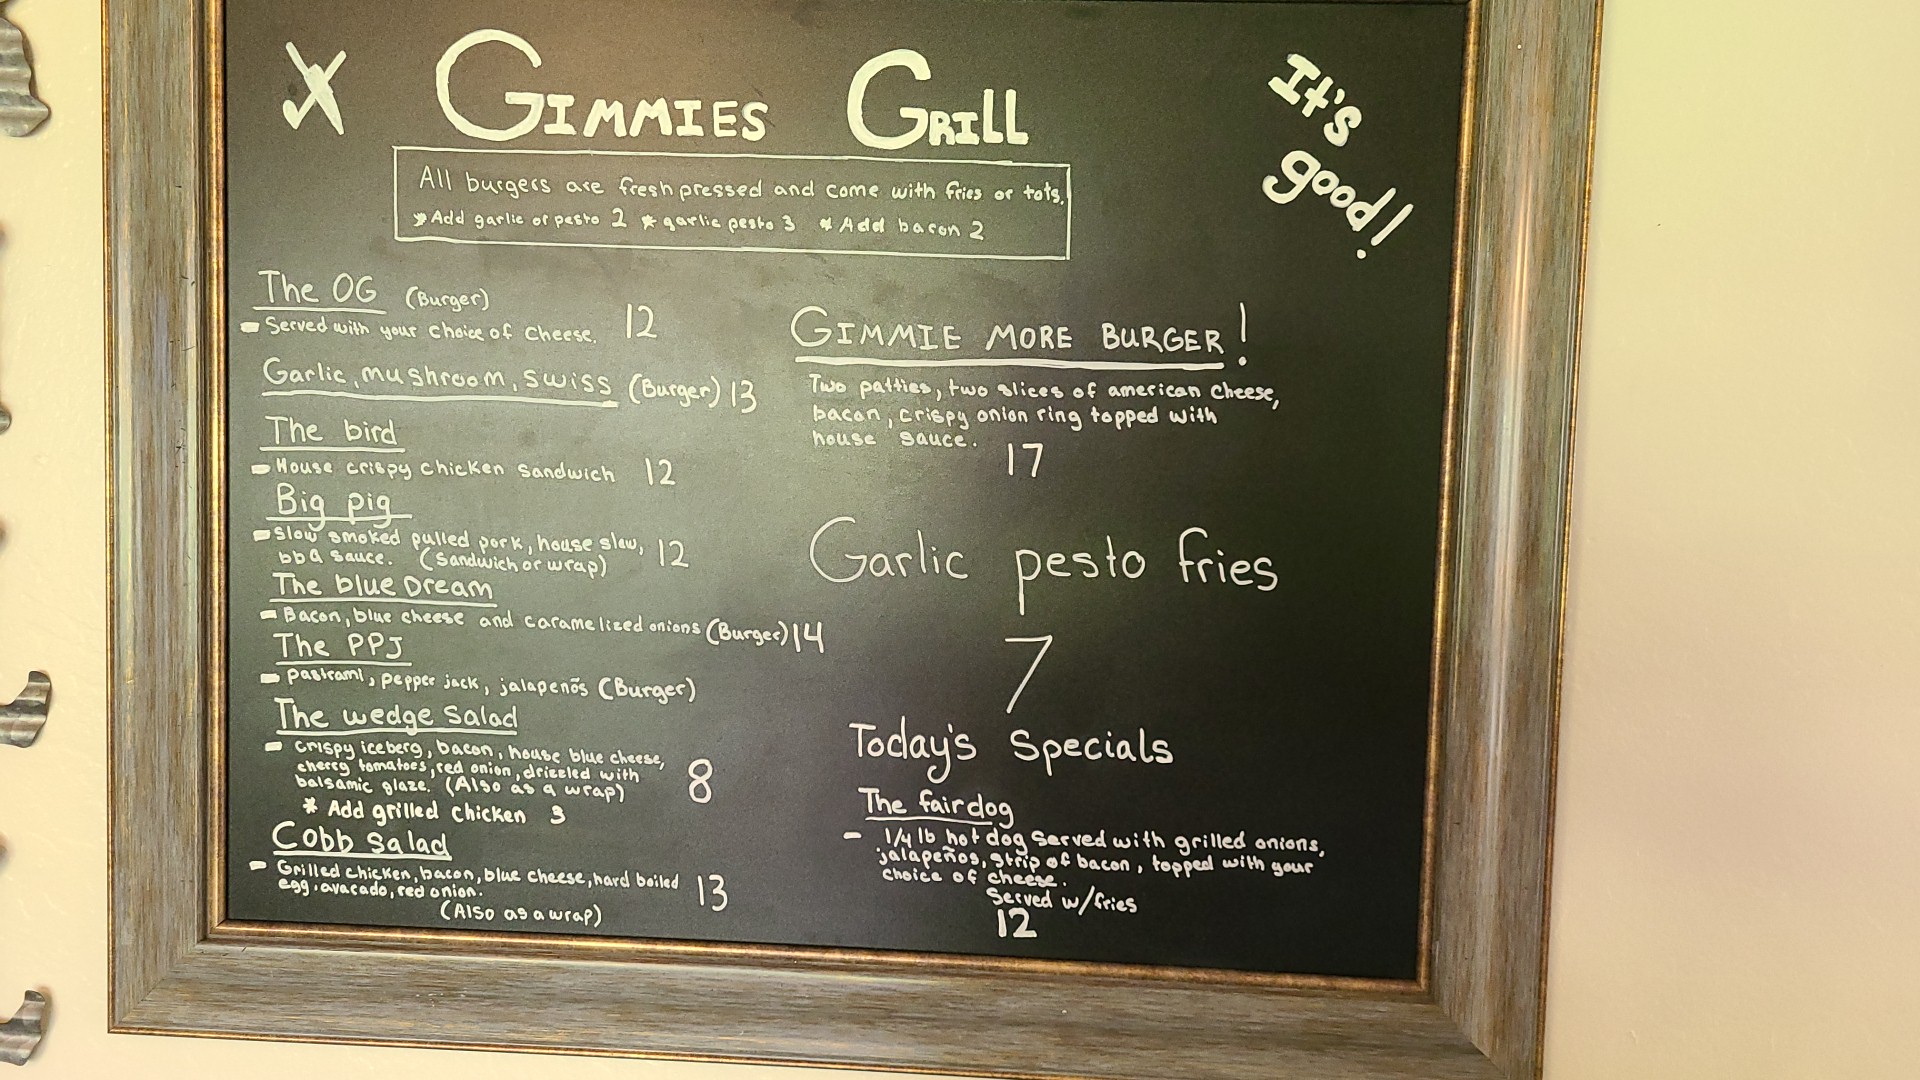 X GIMMIES GRILL
It's
good!
All burgers are fresh pressed and come with fries or tots.
* Add garlic or pesto 2 * garlic pesto 3 * Add bacon 2
The OG (Burger)
- Served with your choice of cheese. 12
Garlic, mushroom, swiss (Burger) 13
The bird
- House crispy chicken sandwich 12
Big pig
- Slow smoked pulled pork, house slaw, 12
bbq sauce. (Sandwich or wrap)
The blue Dream
- Bacon, blue cheese and caramelized onions (Burger) 14
The PPJ
- pastrami, pepper jack, jalapenõs (Burger)
The wedge salad
- crispy iceberg, bacon, house blue cheese,
cherry tomatoes, red onion, drizzled with
balsamic glaze. (Also as a wrap) 8
* Add grilled chicken 3
Cobb salad
- Grilled chicken, bacon, blue cheese, hard boiled
egg, avacado, red onion. 13
(Also as a wrap)
GIMMIE MORE BURGER!
Two patties, two slices of american cheese,
bacon, crispy onion ring topped with
house sauce.
17
Garlic pesto fries
7
Today's Specials
The fairdog
- 1/4 lb hot dog served with grilled onions,
jalapeños, strip of bacon, topped with your
choice of cheese.
Served w/fries
12